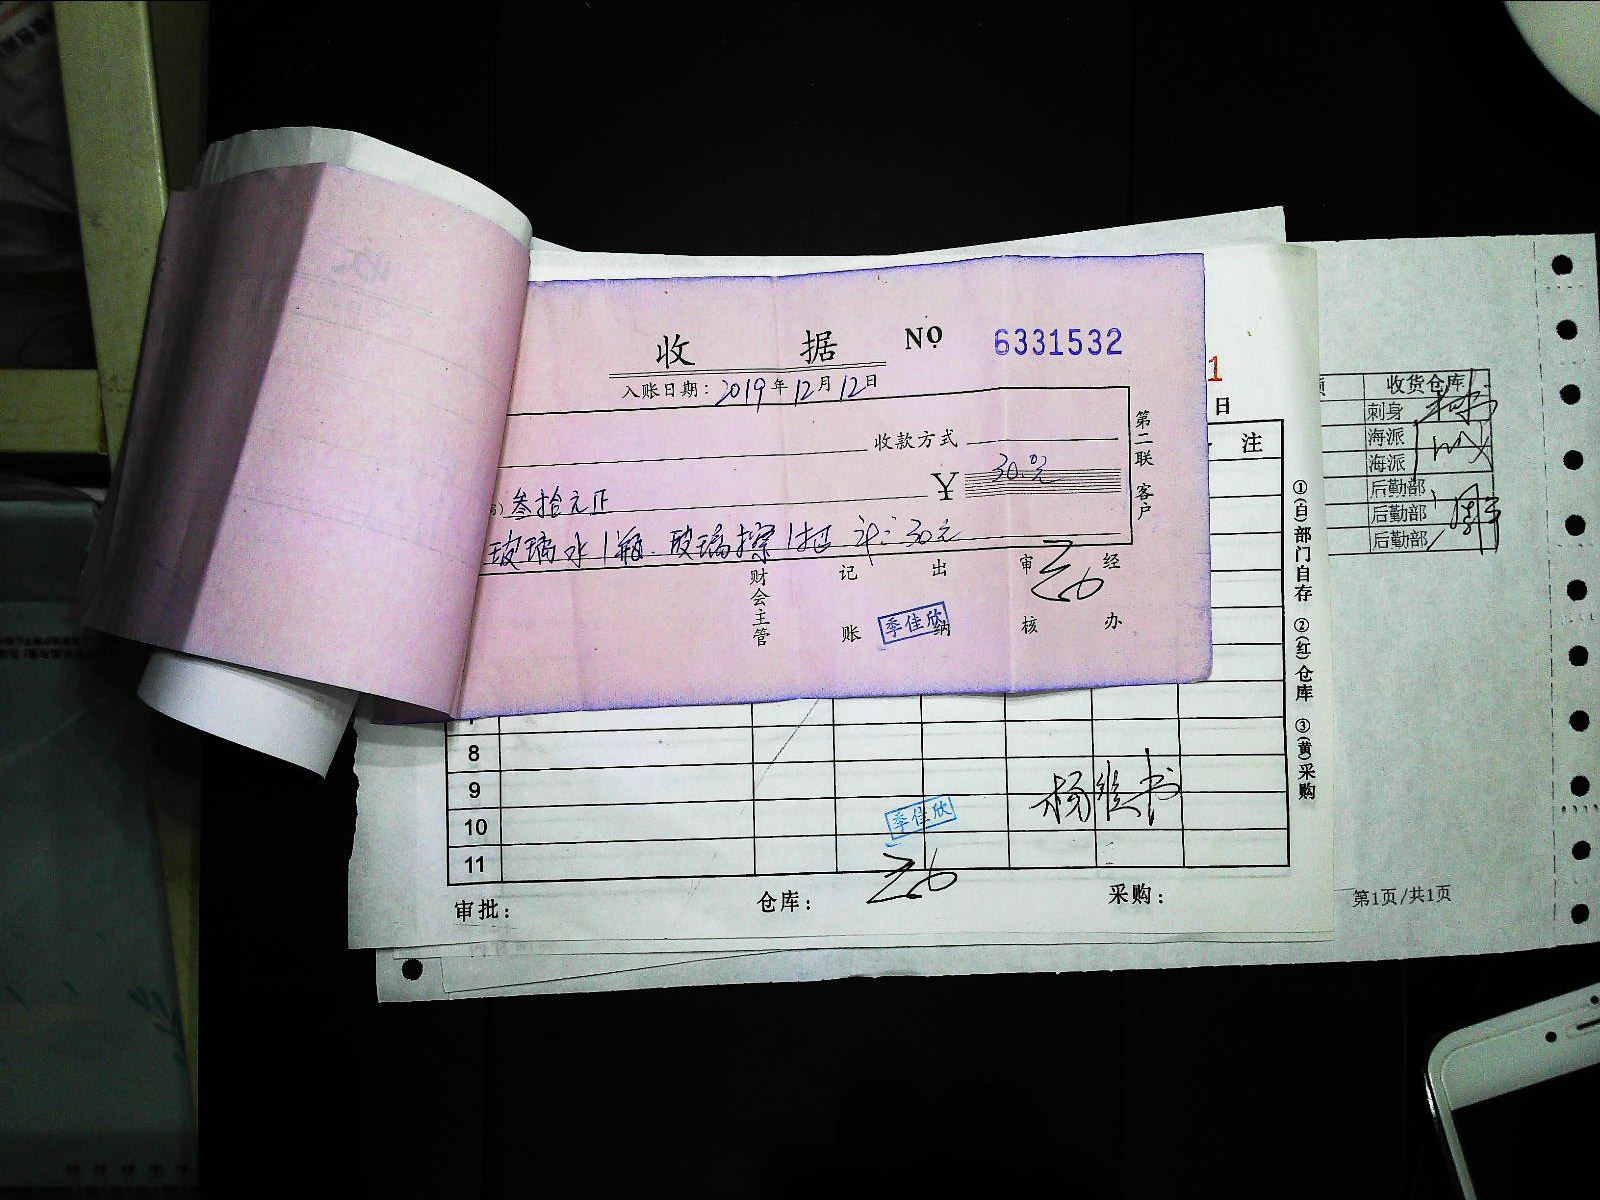 收 据 Nº 6331532
入账日期：2019年12月12日
收款方式
叁拾元正 ¥ 30.元
玻璃水1瓶.玻璃擦1把 计：30元
财会主管 记账 出纳 审核 经办
季佳欣
第二联 客户
1
日
注
8
9
10
11
季佳欣
审批： 仓库： 采购：
①(白)部门自存 ②(红)仓库 ③(黄)采购
收货仓库
刺身
海派
海派
后勤部
后勤部
后勤部
第1页/共1页